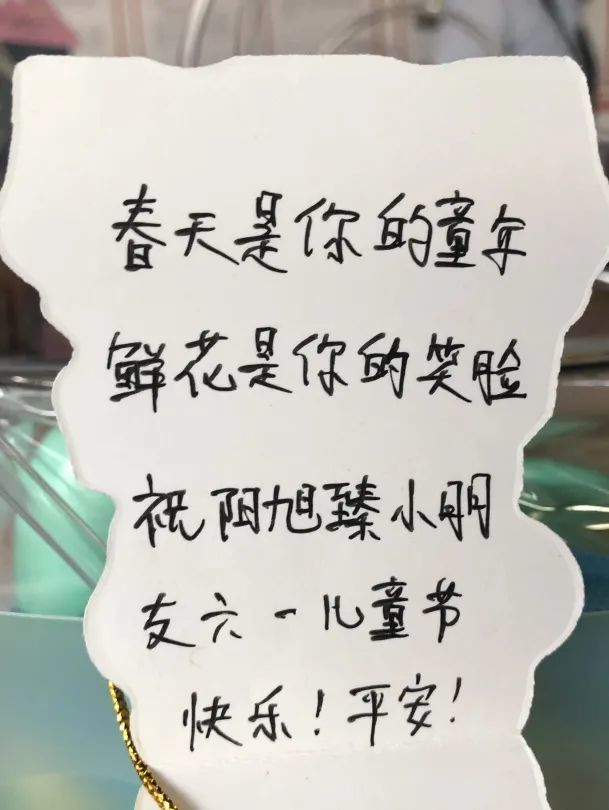 春天是你的童年
鲜花是你的笑脸
祝阳旭臻小朋
友六一儿童节
快乐！平安！